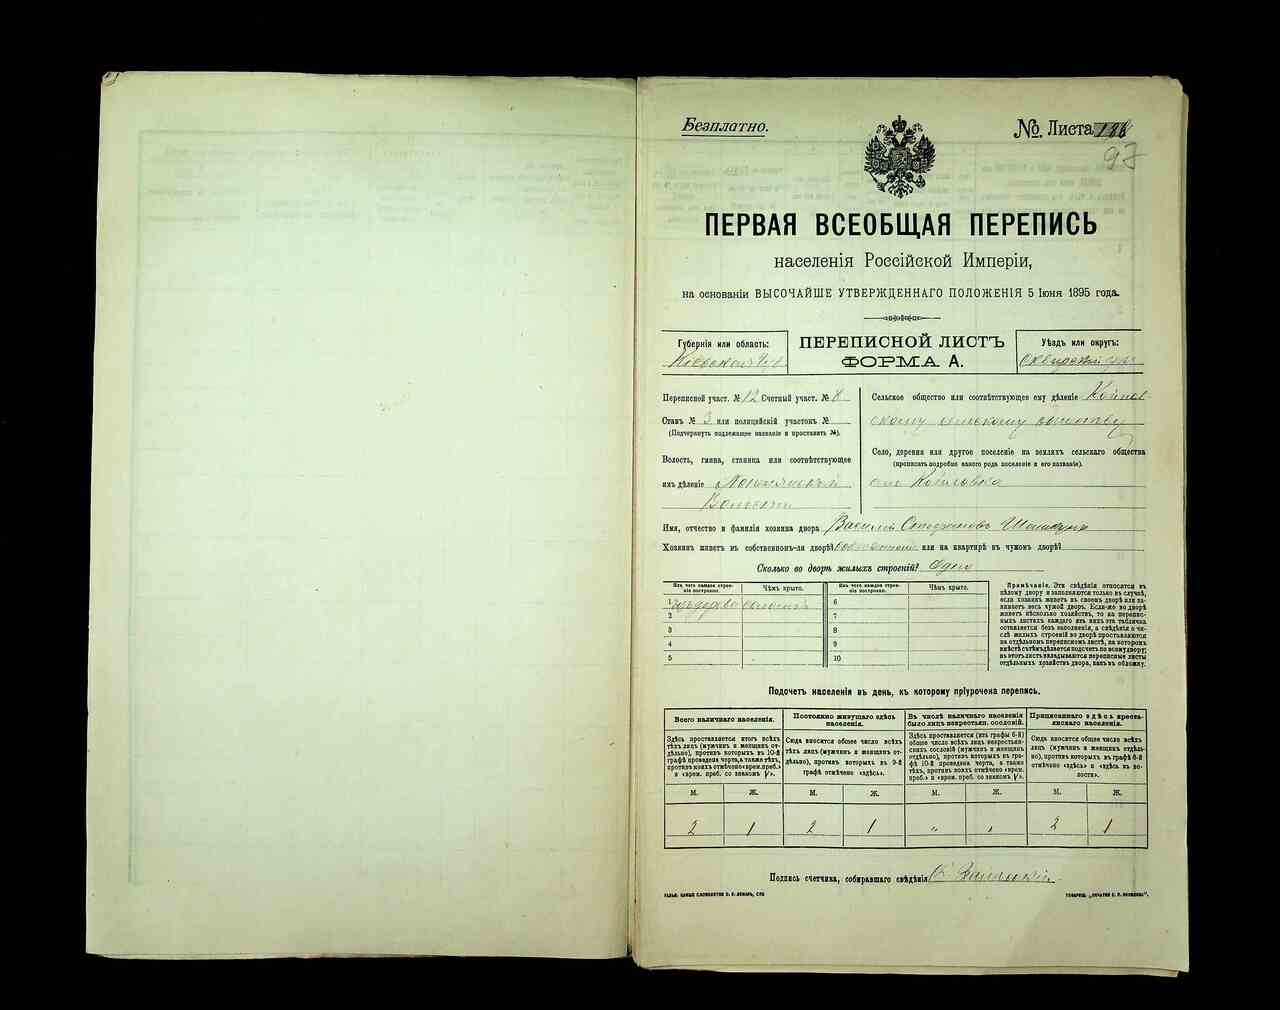 Безплатно.
№. Листа
97
ПЕРВАЯ ВСЕОБЩАЯ ПЕРЕПИСЬ
населенія Россійской Имперіи,
на основаніи ВЫСОЧАЙШЕ УТВЕРЖДЕННАГО ПОЛОЖЕНІЯ 5 Іюня 1895 года.
Губернія или область:
Кіевская Губ
ПЕРЕПИСНОЙ ЛИСТЪ
ФОРМА А.
Уѣздъ или округъ:
Сквирскій
Переписной участ. № 12 Счетный участ. № 8
Станъ № 3 или полицейскій участокъ №
(Подчеркнуть подлежащее названіе и проставить №).
Волость, гмина, станица или соотвѣтствующее
имъ дѣленіе
Волость
Сельское общество или соотвѣтствующее ему дѣленіе
скому сельскому обществу
Село, деревня или другое поселеніе на земляхъ сельскаго общества
(прописать подробно какого рода поселеніе и его названіе).
Имя, отчество и фамилія хозяина двора Василій Стефановъ
Хозяинъ живетъ въ собственномъ-ли дворѣ? или на квартирѣ въ чужомъ дворѣ?
Сколько во дворѣ жилыхъ строеній? Одно
Изъ чего каждое строеніе построено.
Чѣмъ крыто.
Изъ чего каждое строеніе построено.
Чѣмъ крыто.
1 изъ дерева соломою
2
3
4
5
6
7
8
9
10
Примѣчаніе. Эти свѣдѣнія относятся къ
цѣлому двору и заполняются только въ случаѣ,
если хозяинъ живетъ въ своемъ дворѣ или занимаетъ
весь чужой дворъ. Если-же во дворѣ
живетъ нѣсколько хозяйствъ, то на переписныхъ
листахъ каждаго изъ нихъ эта табличка
оставляется безъ заполненія, а свѣдѣнія о числѣ
жилыхъ строеній во дворѣ проставляются
на отдѣльномъ переписномъ листѣ, на которомъ
вмѣстѣ съ тѣмъ дѣлается подсчетъ по всему двору;
въ этотъ листъ вкладываются переписные листы
отдѣльныхъ хозяйствъ двора, какъ въ обложку.
Подсчетъ населенія въ день, къ которому пріурочена перепись.
Всего наличнаго населенія.
Постоянно живущаго здѣсь населенія.
Въ числѣ наличнаго населенія было лицъ некрестьян. сословій.
Приписаннаго здѣсь крестьянскаго населенія.
Здѣсь проставляется итогъ всѣхъ
тѣхъ лицъ (мужчинъ и женщинъ отдѣльно),
противъ которыхъ въ 10-й
графѣ проведена черта, а также тѣхъ,
противъ коихъ отмѣчено «врем. преб.»
и «врем. преб. со знакомъ V».
Сюда вносится общее число всѣхъ
тѣхъ лицъ (мужчинъ и женщинъ отдѣльно),
противъ которыхъ въ 9-й
графѣ отмѣчено «здѣсь».
Здѣсь проставляется (изъ графы 6-й)
общее число всѣхъ лицъ некрестьянскихъ
сословій (мужчинъ и женщинъ
отдѣльно), противъ которыхъ въ графѣ
10-й проведена черта, а также
тѣхъ, противъ коихъ отмѣчено «врем.
преб.» и «врем. преб. со знакомъ V».
Сюда вносится общее число всѣхъ
лицъ (мужчинъ и женщинъ отдѣльно),
противъ которыхъ въ графѣ 8-й
отмѣчено «здѣсь» и «здѣсь въ волости».
М. Ж. М. Ж. М. Ж. М. Ж.
2 1 2 1 „ „ 2 1
Подпись счетчика, собиравшаго свѣдѣнія